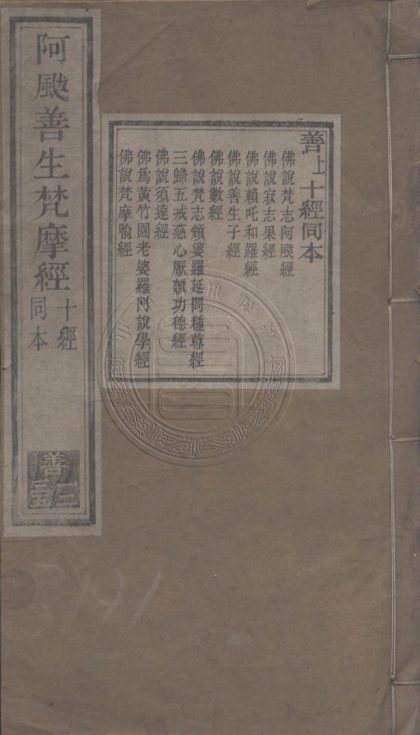 善上十經同本
佛說梵志阿颰經
佛說寂志果經
佛說賴吒和羅經
佛說善生子經
佛說數經
佛說梵志頞婆羅延問種尊經
三歸五戒慈心厭離功德經
佛說須達經
佛爲黃竹園老婆羅門說學經
佛說梵摩喻經
阿颰善生梵摩經
十經
同本
善